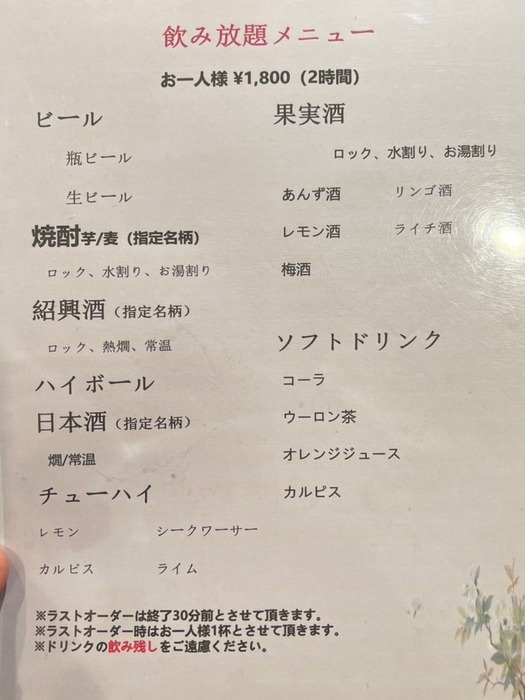 飲み放題メニュー
お一人様 ¥1,800（2時間）
ビール
瓶ビール
生ビール
焼酎芋/麦（指定名柄）
ロック、水割り、お湯割り
紹興酒（指定名柄）
ロック、熱燗、常温
ハイボール
日本酒（指定名柄）
燗/常温
チューハイ
レモン　シークワーサー
カルピス　ライム
果実酒
ロック、水割り、お湯割り
あんず酒　リンゴ酒
レモン酒　ライチ酒
梅酒
ソフトドリンク
コーラ
ウーロン茶
オレンジジュース
カルピス
※ラストオーダーは終了30分前とさせて頂きます。
※ラストオーダー時はお一人様1杯とさせて頂きます。
※ドリンクの飲み残しをご遠慮ください。